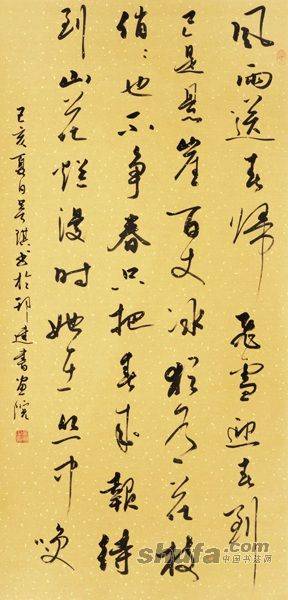 風雨送春歸 飛雪迎春到
已是悬崖百丈冰犹有花枝
俏々也不争春只把春来報待
到山花烂漫時她在丛中咲
己亥夏日吴琪书於邗建書画院
shufa.com
中国书法网